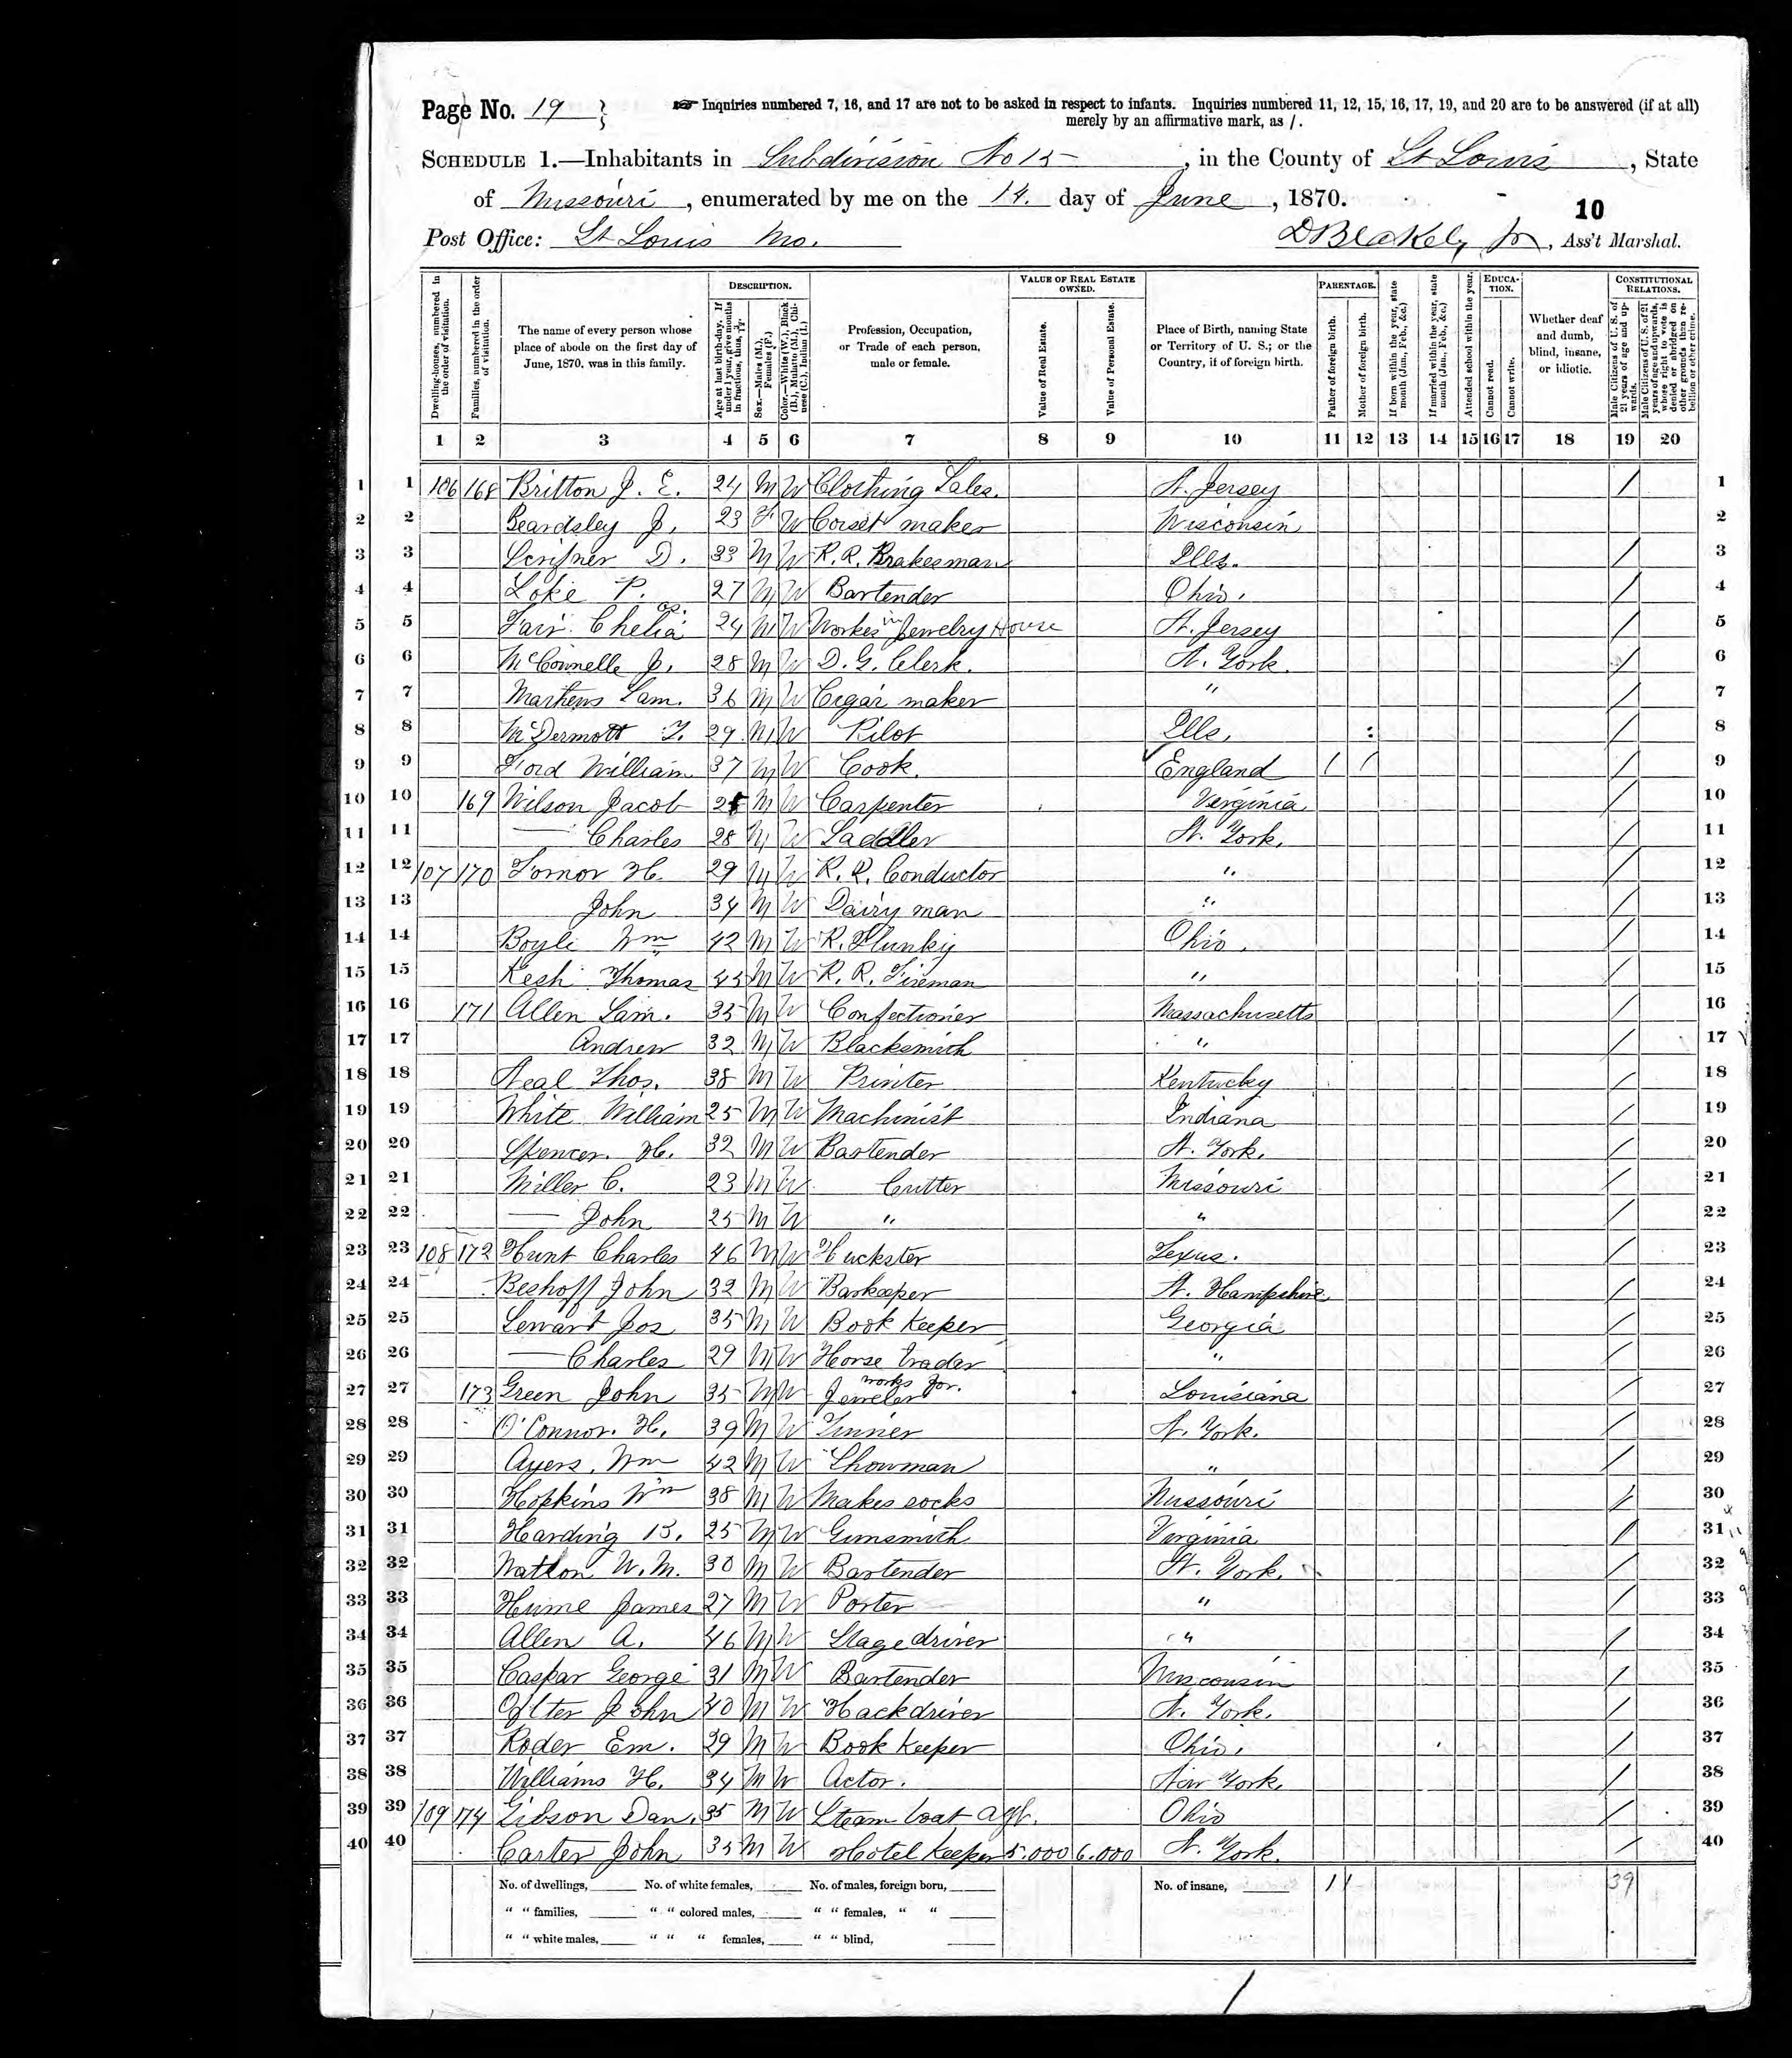 Page No. 19
☞ Inquiries numbered 7, 16, and 17 are not to be asked in respect to infants. Inquiries numbered 11, 12, 15, 16, 17, 19, and 20 are to be answered (if at all)
merely by an affirmative mark, as /.
SCHEDULE 1.—Inhabitants in Subdivision No 15, in the County of St Louis, State
of Missouri, enumerated by me on the 14. day of June, 1870.
10
Post Office: St Louis Mo.
D Blakely Jr, Ass't Marshal.
Dwelling-houses, numbered in the order of visitation.
Families, numbered in the order of visitation.
The name of every person whose place of abode on the first day of June, 1870, was in this family.
DESCRIPTION.
Age at last birth-day. If under 1 year, give months in fractions, thus, 3/12.
Sex.—Males (M.), Females (F.)
Color.—White (W.), Black (B.), Mulatto (M.), Chinese (C.), Indian (I.)
Profession, Occupation, or Trade of each person, male or female.
VALUE OF REAL ESTATE OWNED.
Value of Real Estate.
Value of Personal Estate.
Place of Birth, naming State or Territory of U. S.; or the Country, if of foreign birth.
PARENTAGE.
Father of foreign birth.
Mother of foreign birth.
If born within the year, state month (Jan., Feb., &c.)
If married within the year, state month (Jan., Feb., &c.)
Attended school within the year.
EDUCATION.
Cannot read.
Cannot write.
Whether deaf and dumb, blind, insane, or idiotic.
CONSTITUTIONAL RELATIONS.
Male Citizens of U. S. of 21 years of age and upwards.
Male Citizens of U. S. of 21 years of age and upwards, whose right to vote is denied or abridged on other grounds than rebellion or other crime.
1 2 3 4 5 6 7 8 9 10 11 12 13 14 15 16 17 18 19 20
1 1 106 168 Britton J. E. 24 M W Clothing Sales. N. Jersey / 1
2 2 Beardsley J. 23 F W Corset maker Wisconsin 2
3 3 D. 33 M W R. R. Brakesman Ills. / 3
4 4 Loke P. 27 M W Bartender Ohio. / 4
5 5 Fair 24 M W Works in Jewelry House N. Jersey / 5
6 6 McConnelle J. 28 M W D. G. Clerk. N. York. / 6
7 7 Martens Sam. 36 M W Cigar maker " / 7
8 8 McDermott F. 29 M W Pilot Ills. / 8
9 9 Ford William 37 M W Cook. England / / / 9
10 10 169 Wilson Jacob M W Carpenter Virginia / 10
11 11 — Charles 28 M W Saddler N. York. / 11
12 12 107 170 Fornor H. 29 M W R. R. Conductor " / 12
13 13 John 34 M W Dairy man " / 13
14 14 Boyle Wm 42 M W R. Flunky Ohio. / 14
15 15 Kesh Thomas 45 M W R. R. Fireman " / 15
16 16 171 Allen Sam. 35 M W Confectioner Massachusetts / 16
17 17 Andrew 32 M W Blacksmith " / 17
18 18 Neal Thos. 38 M W Printer Kentucky / 18
19 19 White William 25 M W Machinist Indiana / 19
20 20 Spencer. H. 32 M W Bartender N. York. / 20
21 21 Miller C. 23 M W Cutter Missouri / 21
22 22 — John 25 M W " " / 22
23 23 108 172 Hunt Charles 46 M W Huckster Texas. / 23
24 24 Beshoff John 32 M W Barkeeper N. Hampshire / 24
25 25 Sewart Jos 35 M W Book Keeper Georgia / 25
26 26 — Charles 29 M W Horse trader " / 26
27 27 173 Green John 35 M W works for. Jeweler Louisiana / 27
28 28 O'Connor. H. 39 M W Tinner N. York. / 28
29 29 Ayers. Wm 42 M W Showman " / 29
30 30 Hopkins Wm 38 M W Makes socks Missouri / 30
31 31 Harding B. 25 M W Gunsmith Virginia / 31
32 32 W. M. 30 M W Bartender N. York. / 32
33 33 Hume James 27 M W Porter " / 33
34 34 Allen A. 46 M W Stage driver " / 34
35 35 Caspar George 31 M W Bartender Wisconsin / 35
36 36 John 40 M W Hackdriver N. York. / 36
37 37 Roder Em. 29 M W Book Keeper Ohio. / 37
38 38 Williams H. 34 M W Actor. New York. / 38
39 39 109 174 Gibson Dan. 35 M W Steam boat agt. Ohio / 39
40 40 Carter John 35 M W Hotel Keeper 5.000 6.000 N. York. / 40
No. of dwellings, No. of white females, No. of males, foreign born, No. of insane, 1 1 39
" " families, " " colored males, " " females, " "
" " white males, " " " females, " " blind,